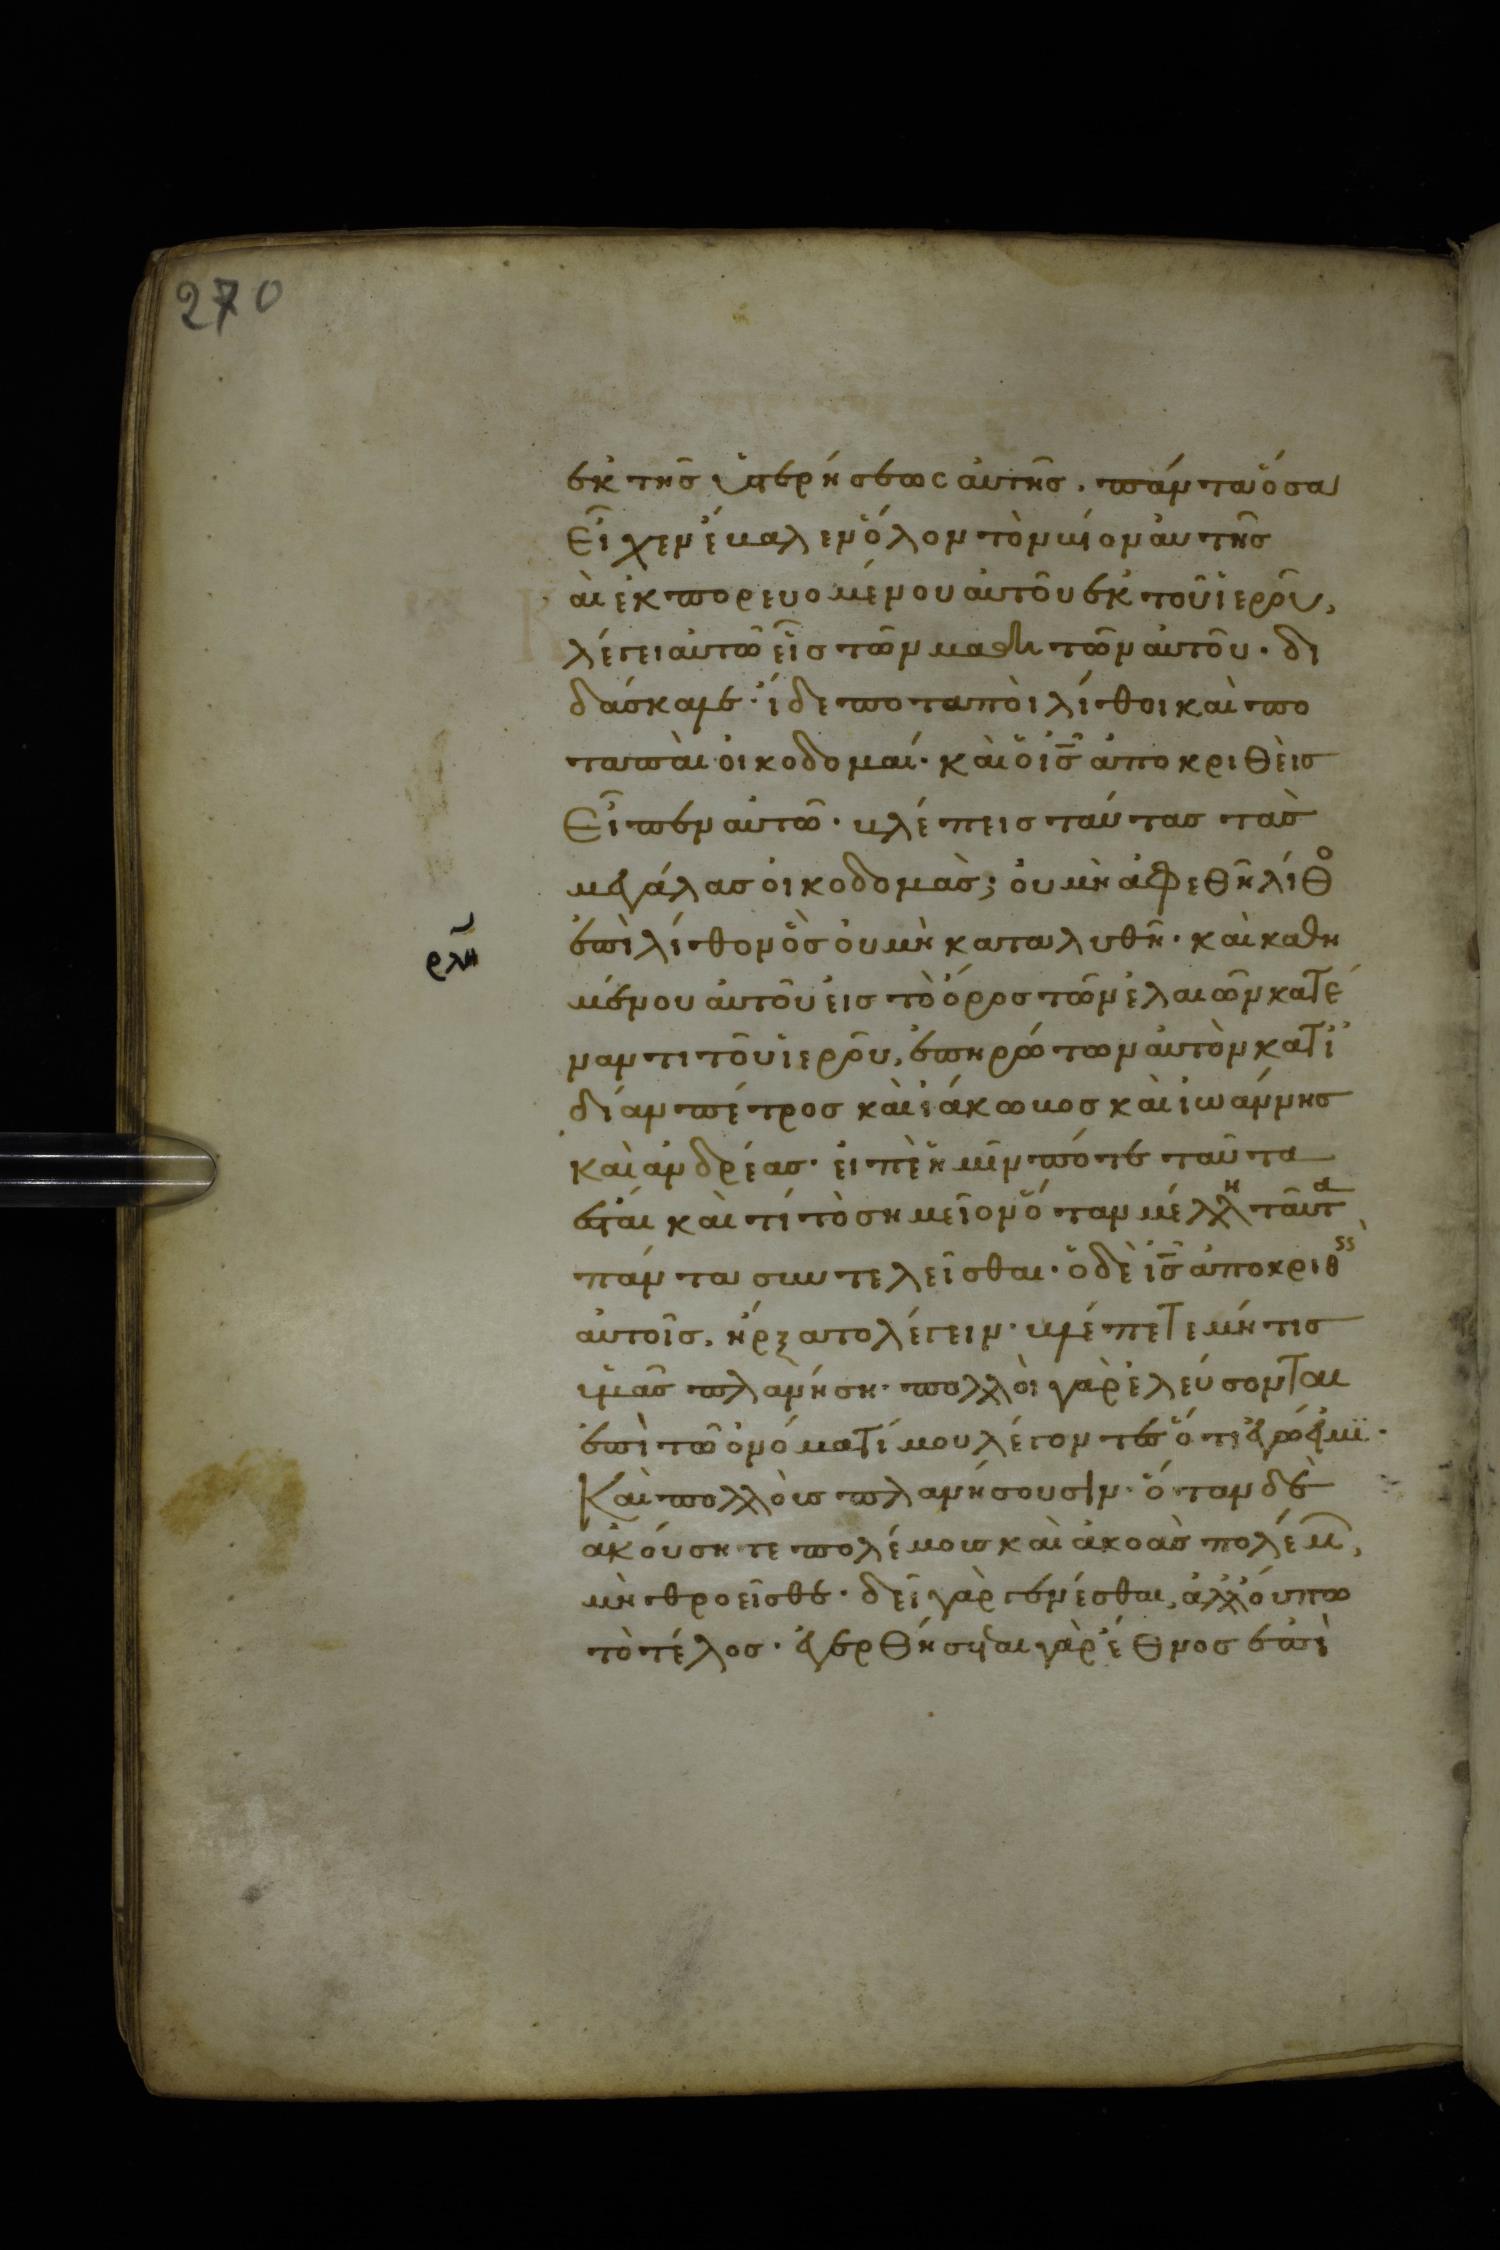 270
ἐκ τῆς ὑστερήσεως αὐτῆς. πάντα ὅσα
εἶχεν ἔβαλεν ὅλον τὸν βίον αὐτῆς
αὶ ἐκπορευομένου αὐτοῦ ἐκ τοῦ ἱεροῦ,
λέγει αὐτῶ εἷς τῶν μαθητῶν αὐτοῦ. δι
δάσκαλε. ἴδε ποταποὶ λίθοι καὶ πο
ταπαὶ οἰκοδομαί. καὶ ὁ ις ἀποκριθεὶς
εἶπεν αὐτῶ. βλέπεις ταύτας τὰς
μεγάλας οἰκοδομὰς; οὐ μὴ ἀφεθῆ λίθο
ἐπὶ λίθον ὃς οὐ μὴ καταλυθῆ. καὶ καθη
ρλη
μένου αὐτοῦ εἰς τὸ ὄρος τῶν ἐλαιῶν κατέ
ναντι τοῦ ἱεροῦ, ἐπηρώτων αὐτὸν κατ ἰ
δίαν πέτρος καὶ ἰάκωβος καὶ ἰωάννης
καὶ ἀνδρέας. εἰπὲ ἡμῖν πότε ταῦτα
ἔσται καὶ τί τὸ σημεῖον ὅταν μέλλη ταῦτα
πάντα συντελεῖσθαι. ὁ δὲ ις ἀποκριθεὶς
αὐτοῖς, ἤρξατο λέγειν. βλέπετε μή τις
ὑμᾶς πλανήση. πολλοὶ γὰρ ἐλεύσονται
ἐπὶ τῶ ὀνόματί μου λέγοντες ὅτι ἐγώ εἰμι.
Καὶ πολλοὺς πλανήσουσιν. ὅταν δὲ
ἀκούσητε πολέμους καὶ ἀκοὰς πολέμ,
μὴ θροεῖσθε. δεῖ γὰρ γενέσθαι, ἀλλ οὔπω
τὸ τέλος. ἐγερθήσεται γὰρ ἔθνος ἐπὶ